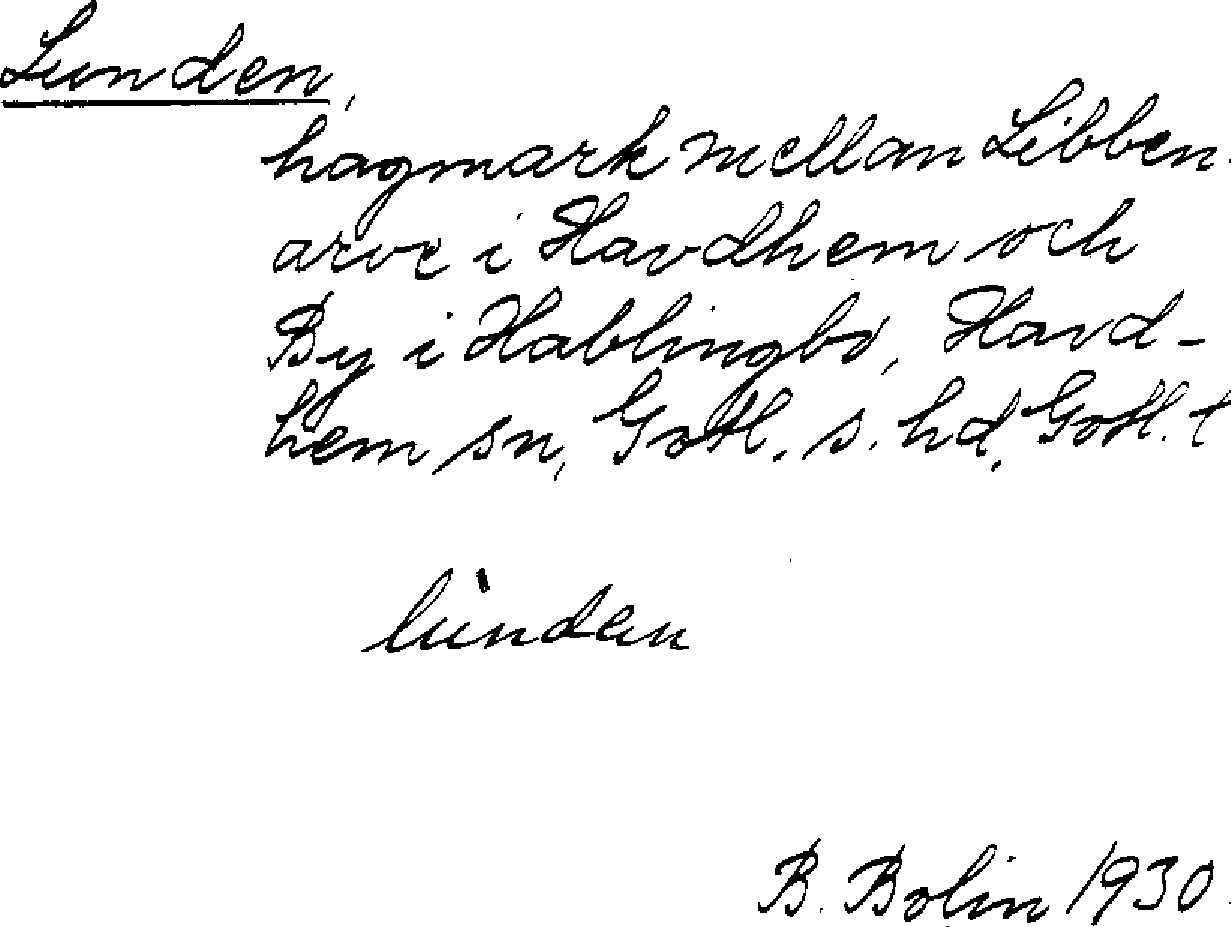 Lunden,
hagmark mellan Libben-
arve i Havdhem och
By i Hablingbo, Havd-
hem sn, Gotl. s. hd, Gotl. l
lùnden
B. Bolin 1930.